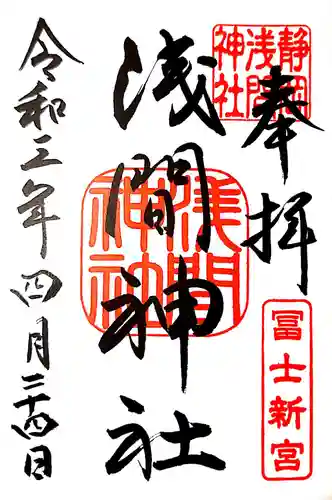 奉拝
静岡
浅間
神社
冨士新宮
浅間神社
浅間
神社
令和三年四月二十四日